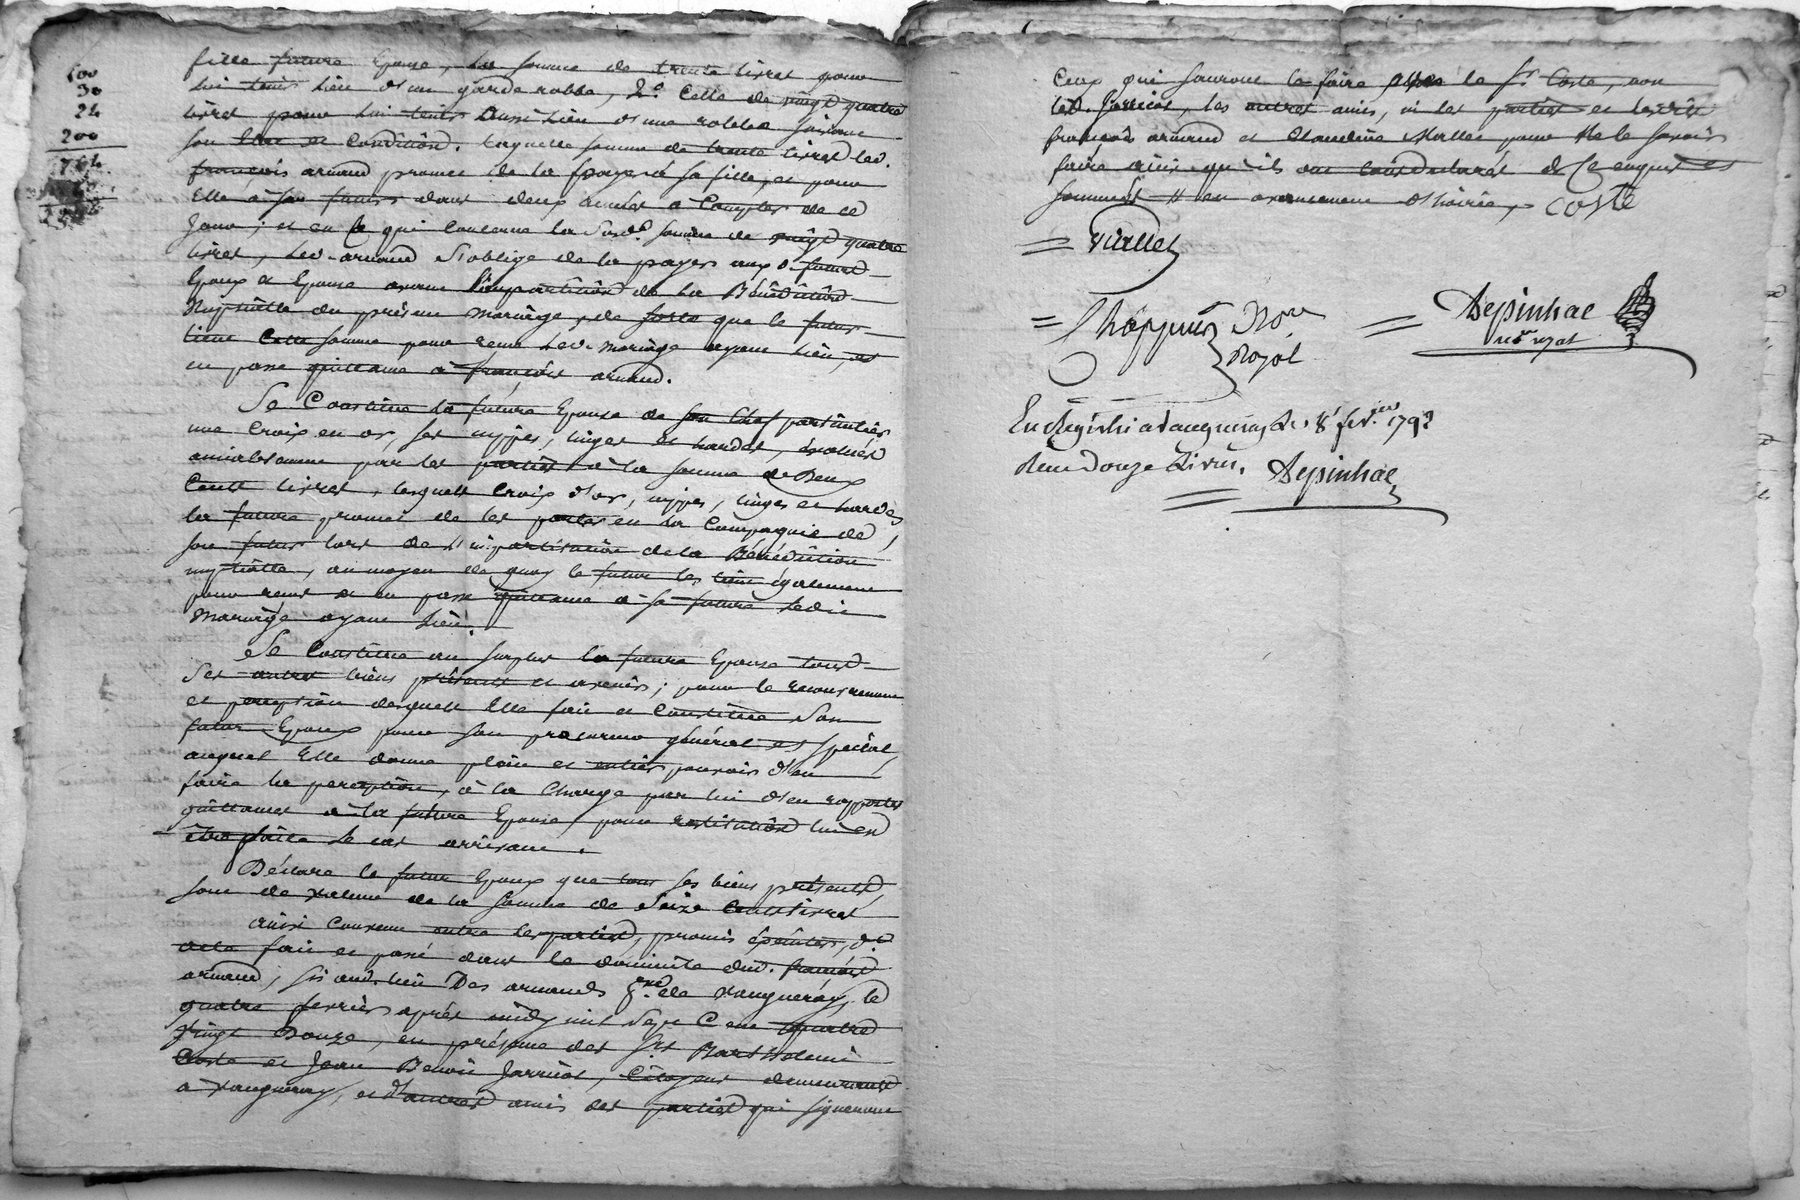 500
30
24
200
754
fille future Epouse, La somme de trente livres pour
lui tenir lieu d'un garde robbe, 2.° Celle de vingt quatre
livres pour lui tenir aussi lieu d'une robbe suivant
son Etat et Condition. Laquelle somme de trente livres led.
françois arnaud promet de la payer à sa fille, et pour
Elle à son futur dans deux années à Compter de ce
jour; et en Ce qui Concerne la Susd.e somme de vingt quatre
livres, Led. arnaud s'oblige de la payer aux d. futurs
Epoux et Epouse avant l'impartition de la Bénédiction
Nuptialle du présent mariage, de sorte que le futur
tient Cette somme pour reçue Led. mariage ayant lieu, et
en passe quittance à françois arnaud.
Se Constitue La future Epouse de son Chef particulier
une Croix en or, ses nippes, linges et hardes, évalués
amiablement par les parties à la somme de Deux
Cents livres, lesquels Croix d'or, nippes, linges et hardes
la future promet de les porter en La Compagnie de
son futur lors de l'impartition de la Bénédiction
nuptialle, au moyen de quoy le futur les tient également
pour reçus et en passe quittance à sa future Ledit
Mariage ayant lieu.
Se Constitue au surplus la future Epouse tous
Ses autres biens présents et avenirs; pour le recouvrement
et perception desquels Elle fait et Constitue Son
futur Epoux pour son procureur général et spécial,
auquel Elle donne plein et entier pouvoir d'en
faire la perception, à la Charge par lui d'en rapporter
quittances à la future Epouse pour restitution lui en
être faite le cas arrivant.
Déclare le futur Epoux que tous ses biens présents
sont de valeur de la somme de Seize Cents livres
ainsi Convenu entre les parties, promis
acte fait et passé dans le domicile dud. françois
arnaud, sis aud. lieu Des arnauds de vaugneray, le
quatre fevrier après midy mil Sept Cent quatre
vingt Douze, en présence des Srs Barthelemi
Coste et Jean Benoit Jarricot, Citoyens demeurants
à vaugneray, et d'autres amis des parties qui signeront
Ceux qui sauront le faire le Sr Coste, non
led. Jarricot, les autres amis, ni les parties et lesdits
françois arnaud et Claudine Mallet pour ne le savoir
faire ainsi qu'ils ont tous déclarés de Ce enquis et
sommés // en avancement d'hoirie, COSTE
Viallet
Royal
Depinhac
Enregistré à Vaugneray Le 8 fev.ier 1792
Reçu Douze Livres. Depinhac